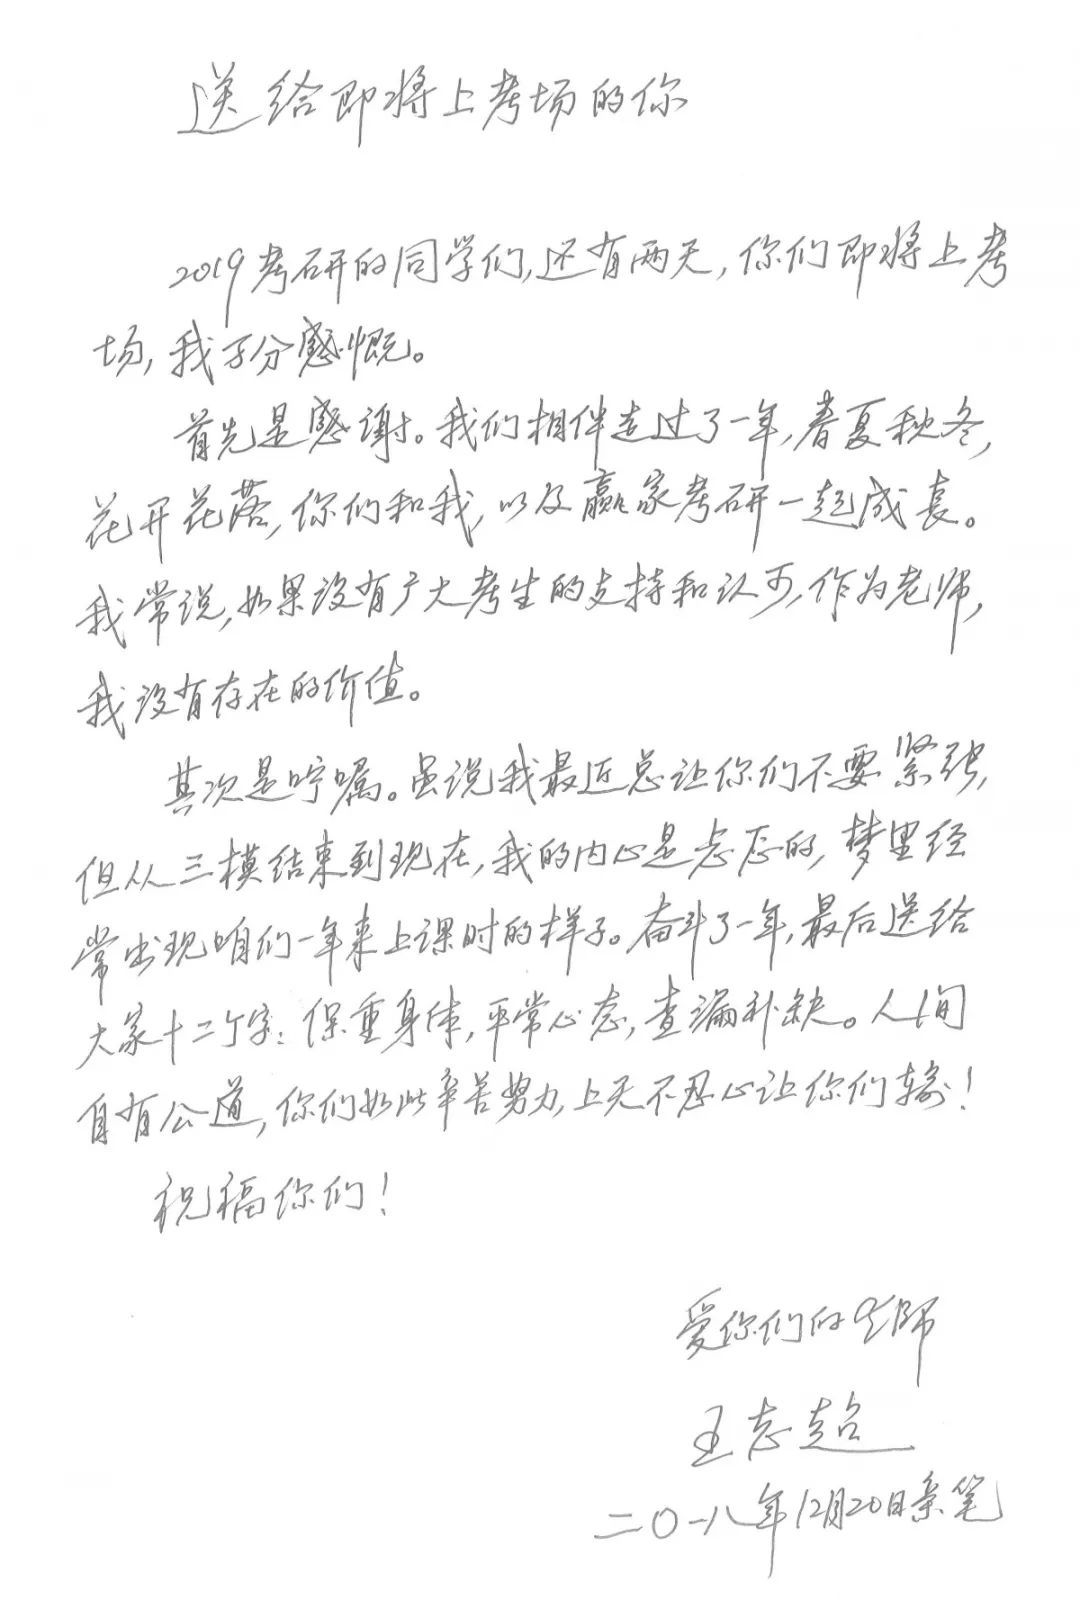 送给即将上考场的你
2019考研的同学们,还有两天,你们即将上考
场,我万分感慨。
首先是感谢。我们相伴走过了一年,春夏秋冬,
花开花落,你们和我,以及赢家考研一起成长。
我常说,如果没有广大考生的支持和认可,作为老师,
我没有存在的价值。
其次是叮嘱。虽说我最近总让你们不要紧张,
但从三模结束到现在,我的内心是忐忑的,梦里经
常出现咱们一年来上课时的样子。奋斗了一年,最后送给
大家十二个字:保重身体,平常心态,查漏补缺。人间
自有公道,你们如此辛苦努力,上天不忍心让你们输!
祝福你们!
爱你们的老师
王志超
二〇一八年12月20日亲笔